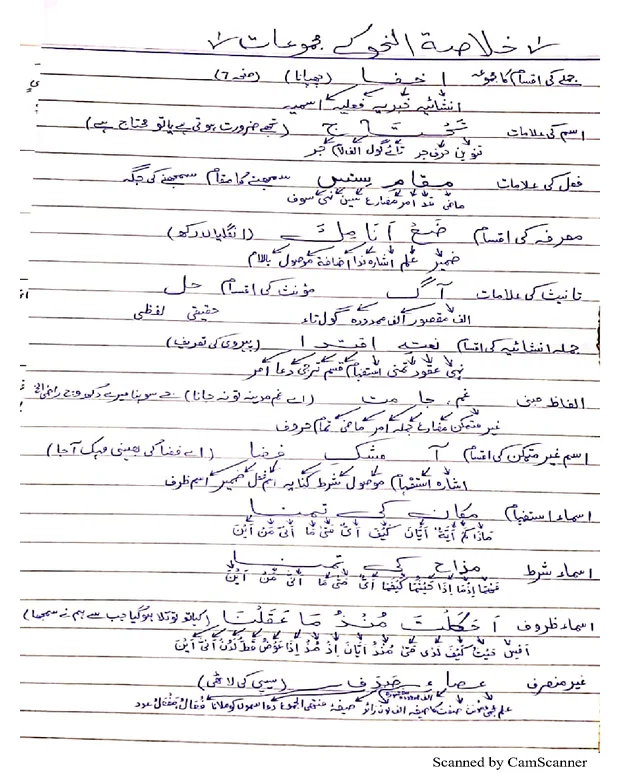 خلاصۃ النحو کے مجموعات
جملے کی اقسام کا مجموعہ اخفا (چھپانا) (صفحہ 6)
انشائیہ خبریہ فعلیہ اسمیہ
اسم کی علامات تَحْتَاج (تجھے ضرورت ہوتی ہے یا تو محتاج ہے)
تنوین حرف جر تائے گول الف لام جر
فعل کی علامات مقام سِنِیں سمجھنے کا مقام سمجھنے کی جگہ
ماضی قد امر مضارع سین نہی سوف
معرفہ کی اقسام ضَعْ اَنَامِلَكَ (انگلیاں رکھ)
ضمیر علم اشارہ ندا اضافۃ موصول بالام
تانیث کی علامات آگ مؤنث کی اقسام حل
الف مقصورہ الف ممدودہ گول تاء حقیقی لفظی
جملہ انشائیہ کی اقسام نعتہ اقتدا (پیروی کی تعریف)
نہی عقود تمنی استفہام قسم ترجی دعا امر
الفاظ مبنی غم جا مت (اے غم مدینہ تو نہ جانا)
غیر متمکن مضارع جملہ امر ماضی تمام حروف
اسم غیر متمکن کی اقسام آ مشک فضا (اے فضا کی بھینی مہک آجا)
اشارہ استفہام موصول شرط کنایہ اسم فعل ضمیر اسم ظرف
اسماء استفہام مکانے کی تمنا
مَاذَا كَمْ اَيَّةُ اَيَّانَ كَيْفَ اَيُّ مَتٰى مَا اَنّٰى مَنْ اَيْنَ
اسماء شرط مذاح کی تمنا
مَهْمَا اِذْمَا اِذَا حَيْثُمَا كَيْفَمَا اَيُّ مَتٰى مَا اَنّٰى مَنْ اَيْنَ
اسماء ظروف اَحَكَلْتَ مُنْذُ مَا عَقَلْتَا
اَمْسِ حَيْثُ كَيْفَ لَدٰى مَتٰى مُنْذُ اَيَّانَ اِذْ مُذْ اِذَا عَوْضُ قَطُّ لَدُنْ اَنّٰى اَيْنَ
غیر منصرف عصاءِ صدف (سیپی کی لاٹھی)
علم الف نون زائد صیغہ منتہی الجموع دو اسموں کو ملانا فُعَالُ مَفْعَلُ عدد
Scanned by CamScanner